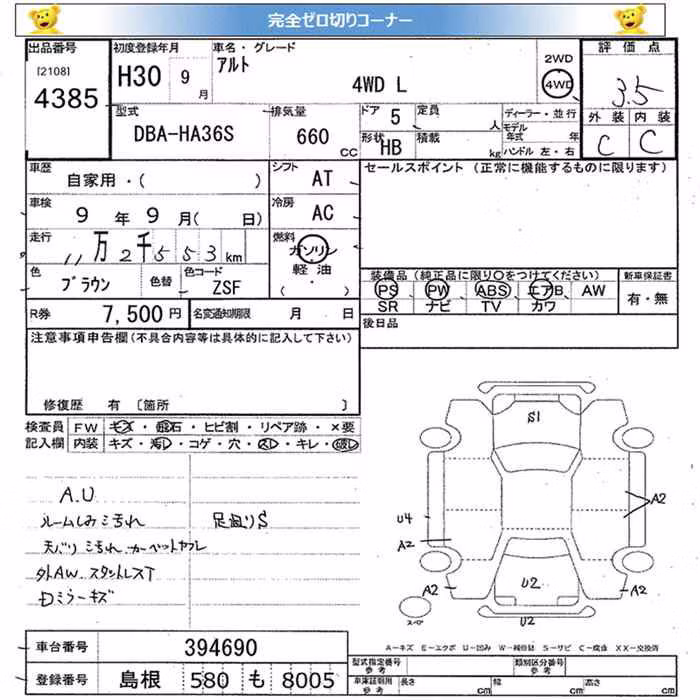 完全ゼロ切りコーナー
出品番号 [2108] 4385
初度登録年月 H30 9月
車名・グレード アルト 4WD L
2WD 4WD
評価点 3.5
外装 C 内装 C
型式 DBA-HA36S
排気量 660 CC
ドア 5 定員 人
形状 HB 積載 kg
ディーラー・並行
モデル年式 年
ハンドル 左・右
車歴 自家用・( )
シフト AT
セールスポイント (正常に機能するものに限ります)
車検 9年9月( 日)
冷房 AC
走行 11万2千553km
燃料 ガソリン 軽油 ( )
色 ブラウン 色替 色コード ZSF
装備品(純正品に限り○をつけてください)
PS PW ABS エアB AW
SR ナビ TV カワ
新車保証書 有・無
R券 7,500円 名変通知期限 月 日
後日品
注意事項申告欄(不具合内容等は具体的に記入して下さい)
修復歴 有 [箇所 ]
検査員記入欄
FW キズ・飛石・ヒビ割・リペア跡・×要
内装 キズ・汚レ・コゲ・穴・スレ・キレ・破レ
A.U
ルームしみ汚れ 足廻りS
天バリ汚れ カーペットヤブレ
外AW スタットレスT
Dミラーキズ
S1
A2
U4
A2
A2
U2
A2
U2
スペア
A−キズ E−エクボ U−凹み W−補修跡 S−サビ C−腐食 XX−交換済
車台番号 394690
登録番号 島根 580 も 8005
型式指定番号 参考 類別区分番号 参考
車庫証明用 参考 長さ cm 幅 cm 高さ cm